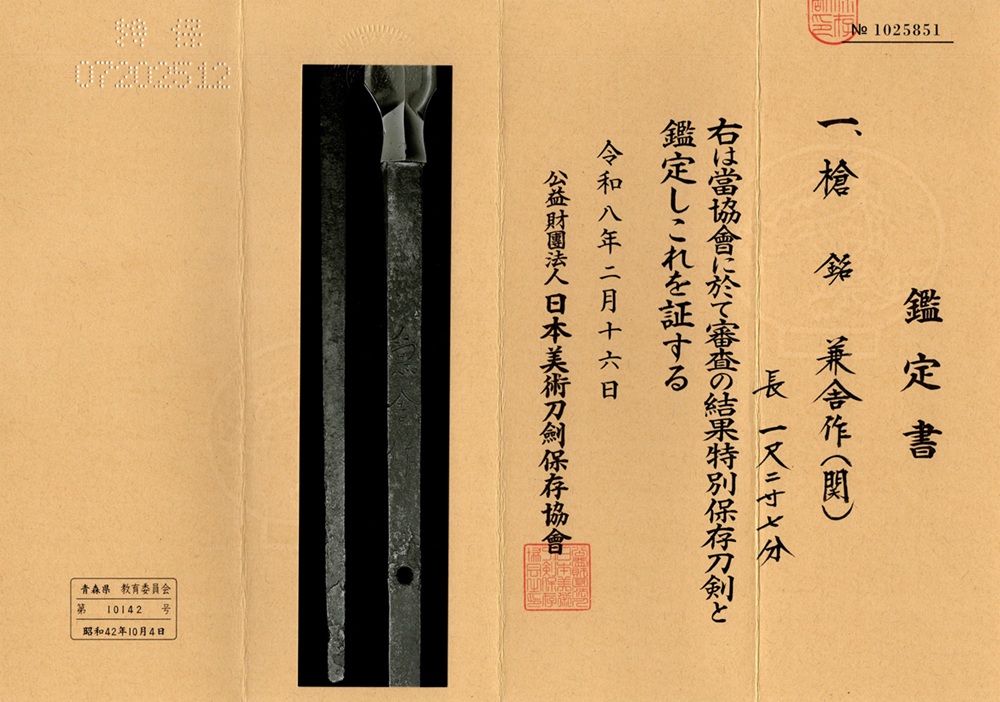 № 1025851
鑑定書
一、槍 銘 兼舎作（関）
長 一尺二寸七分
右は當協會に於て審査の結果特別保存刀剣と
鑑定しこれを証する
令和八年二月十六日
公益財團法人 日本美術刀劍保存協會
特保
07202512
青森県 教育委員会
第 10142 号
昭和42年10月4日